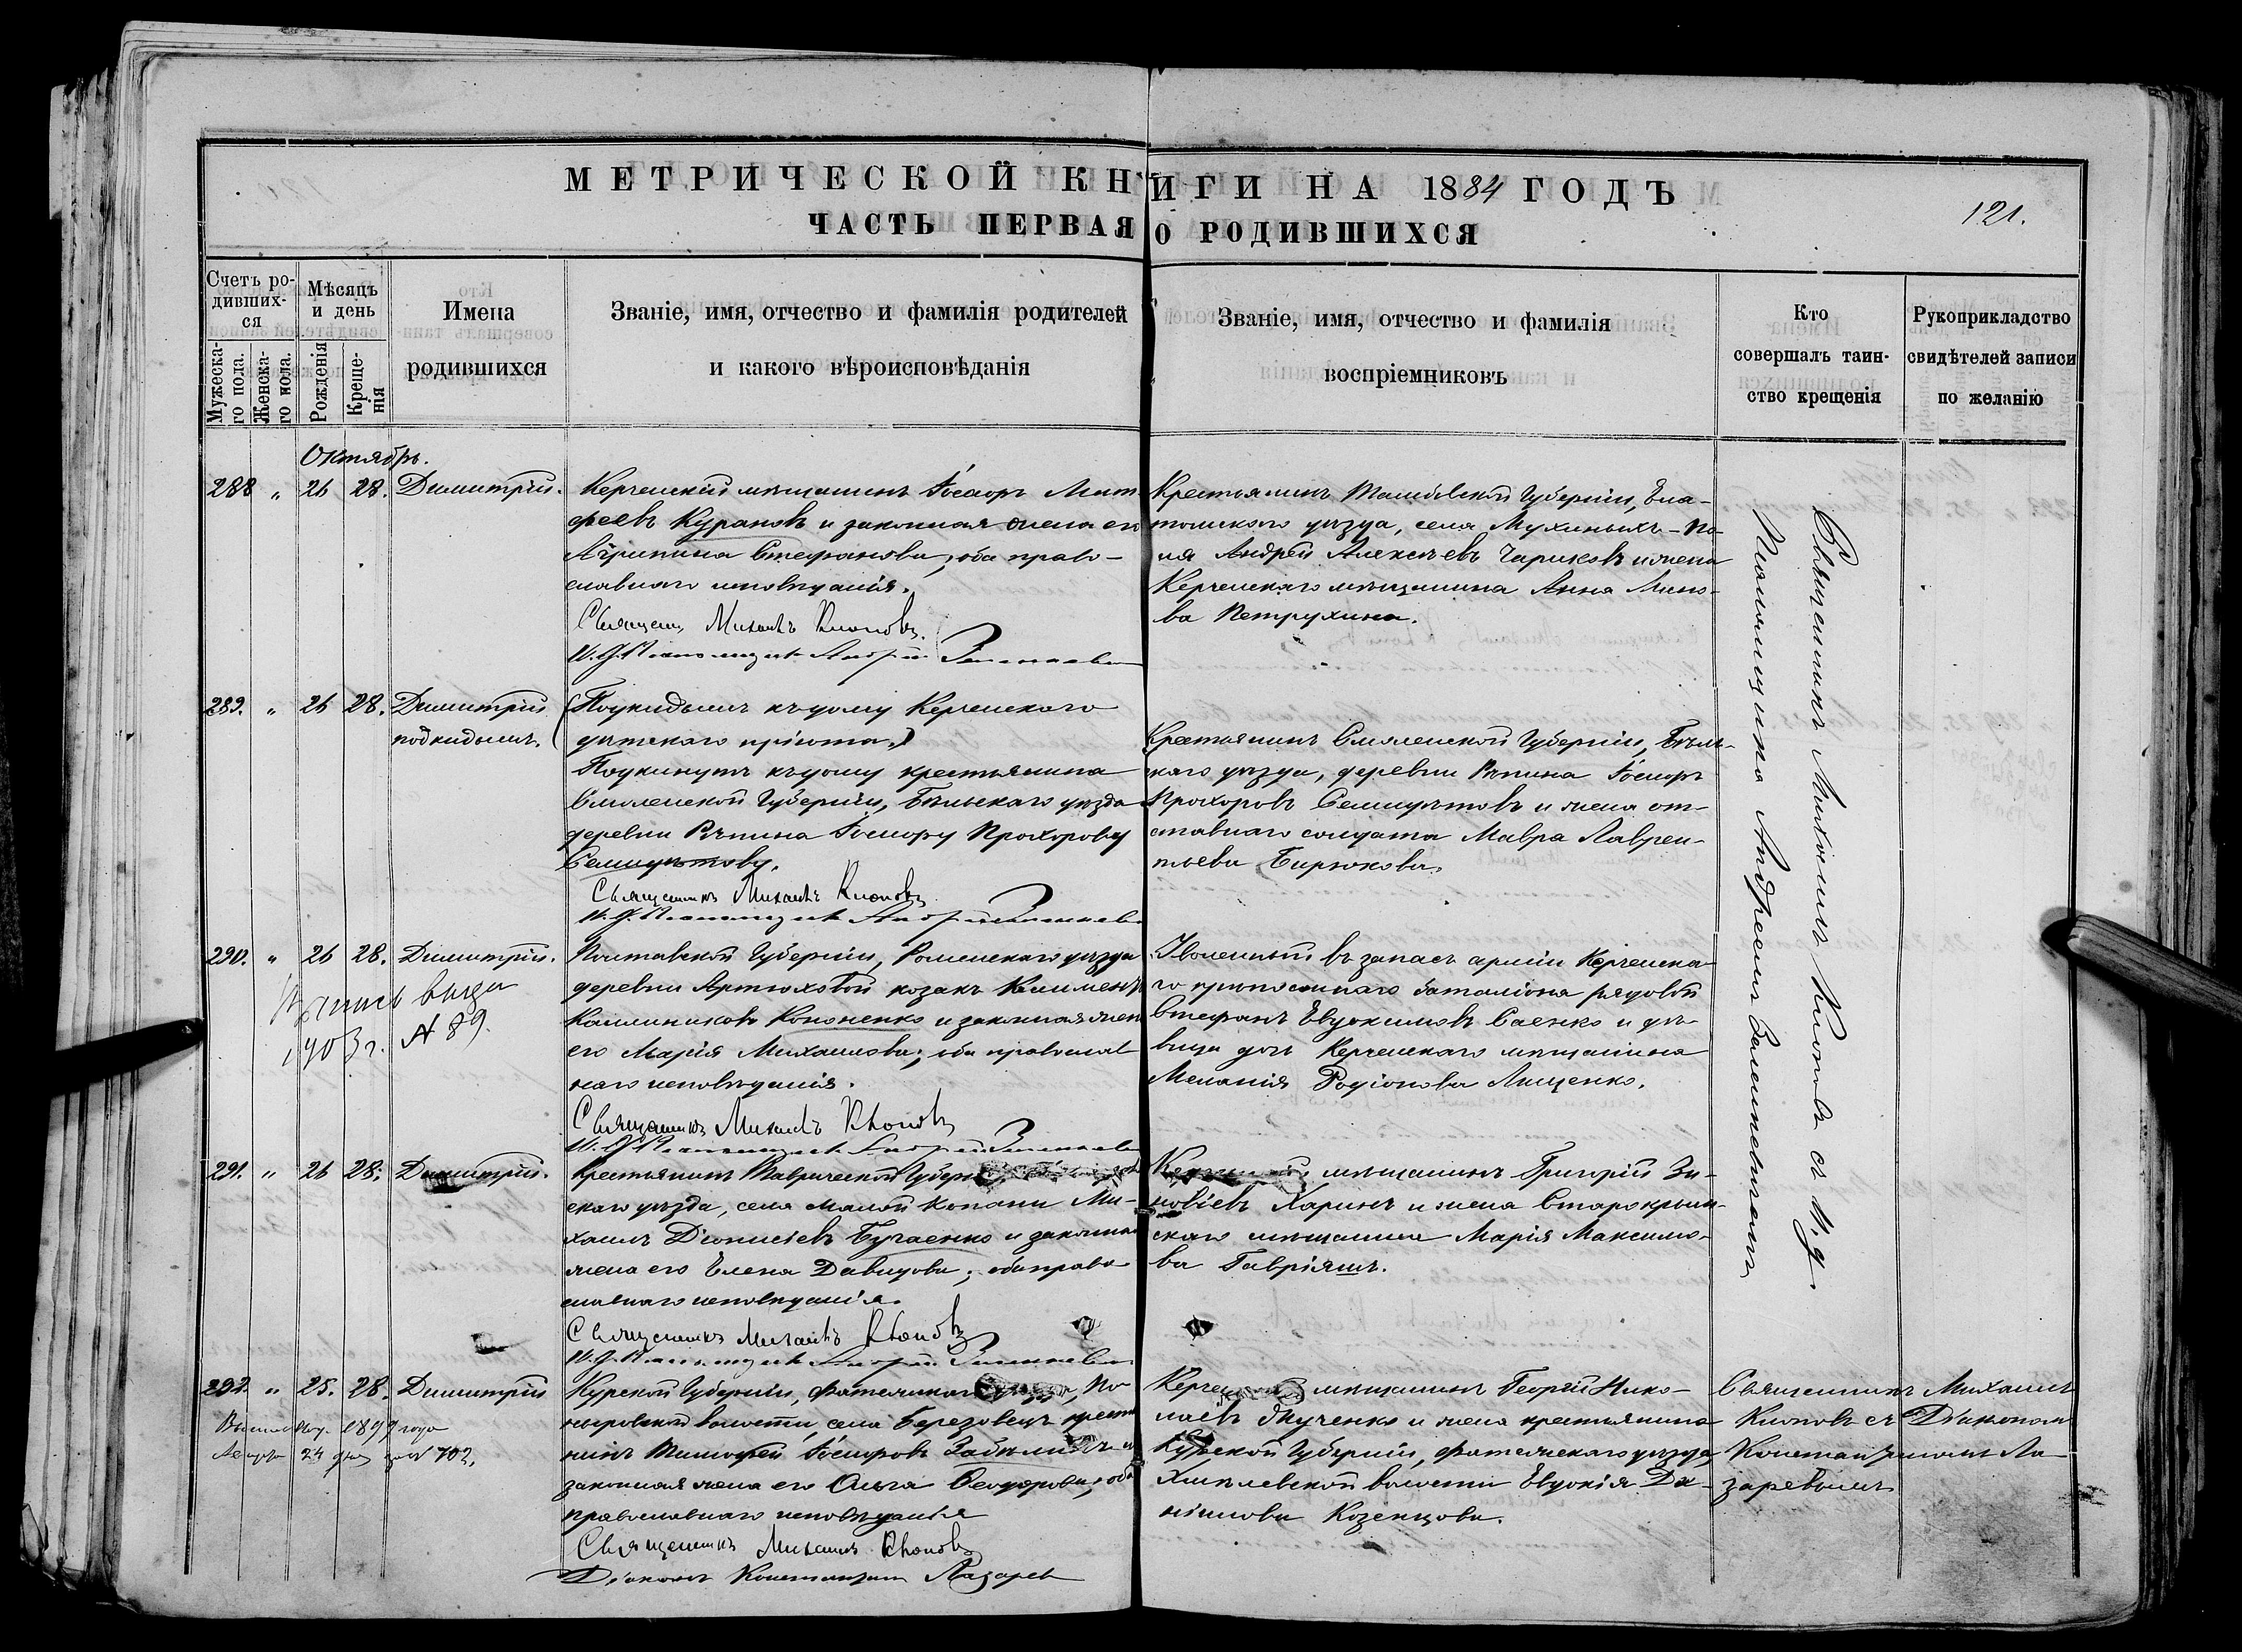 МЕТРИЧЕСКОЙ КНИГИ НА 1884 ГОДЪ
ЧАСТЬ ПЕРВАЯ О РОДИВШИХСЯ
121.
Счетъ ро-
дивших-
ся
Мужеска-
го пола.
Женска-
го пола.
Мѣсяцъ
и день
Рожденія
Креще-
нія
Имена
родившихся
Званіе, имя, отчество и фамилія родителей
и какого вѣроисповѣданія
Званіе, имя, отчество и фамилія
воспріемниковъ
Кто
совершалъ таин-
ство крещенія
Рукоприкладство
свидѣтелей записи
по желанію
Октябрь.
288 " 26 28. Димитрій.
Керченскій мѣщанинъ Ѳеодоръ Мат-
феевъ Курановъ и законная жена его
Агрипина Стефанова, оба право-
славнаго исповѣданія.
Священ. Михаилъ Клоповъ.
И. д. Псаломщика Андрей
Крестьянинъ Тамбовской Губерніи, Ела-
томскаго уѣзда, села Мухиныхъ-По-
ля Андрей Алексѣевъ Чариковъ и жена
Керченскаго мѣщанина Анна
ва Петрухина.
289. " 26 28. Димитрій
подкидышъ.
(Подкидышъ къ дому Керченскаго
дѣтскаго пріюта.)
Подкинутъ къ дому крестьянина
Смоленской Губерніи, Бѣльскаго уѣзда
деревни Рѣпина Ѳеодору Прохорову
Священникъ Михаилъ Клоповъ
И. д. Псаломщика Андрей
Крестьянинъ Смоленской Губерніи, Бѣль-
скаго уѣзда, деревни Рѣпина Ѳеодоръ
Прохоровъ и жена от-
ставнаго солдата Мавра Лаврен-
тьева Бирюкова.
290. " 26 28. Димитрій.
выдан
1903 г. № 89.
Полтавской Губерніи, Роменскаго уѣзда
деревни Артюховой козакъ Климентъ
Кононенко и законная жена
его Марія Михаилова; оба православ-
наго исповѣданія.
Священникъ Михаилъ Клоповъ
И. д. Псаломщика Андрей
Уволенный въ запасъ арміи Керченска-
го крѣпостнаго баталіона рядовой
Стефанъ Евдокимовъ Саенко и дѣ-
вица дочь Керченскаго мѣщанина
Меланія Родіонова Лищенко.
291. " 26 28. Димитрій.
Крестьянинъ Таврической Губерніи
скаго уѣзда, села Малой Копани Ми-
хаилъ Діонисіевъ Бугаенко и законная
жена его Елена Давидова; оба право-
славнаго исповѣданія.
Священникъ Михаилъ Клоповъ
И. д. Псаломщика Андрей
мѣщанинъ Григорій Зи-
новіевъ Харинъ и жена Старокрым-
скаго мѣщанина Марія Максимо-
ва Гавріяшъ.
292. " 25. 28. Димитрій
1899 года
24 дня за № 702.
Курской Губерніи, Фатежскаго уѣзда, По-
ныровской волости, села Березовецъ крестья-
нинъ Тимофей Ѳеодоровъ
законная жена его Ольга Ѳеодорова; оба
православнаго исповѣданія
Священникъ Михаилъ Клоповъ
Діаконъ Константинъ Лазаревъ
мѣщанинъ Георгій Нико-
лаевъ и жена крестьянина
Курской Губерніи, Фатежскаго уѣзда
волости Евдокія Да-
ніилова Козенцова.
Священникъ Михаилъ
Клоповъ съ Діакономъ
Константиномъ Ла-
заревымъ
Священникъ Михаилъ Клоповъ съ И. д.
Псаломщика Андреемъ